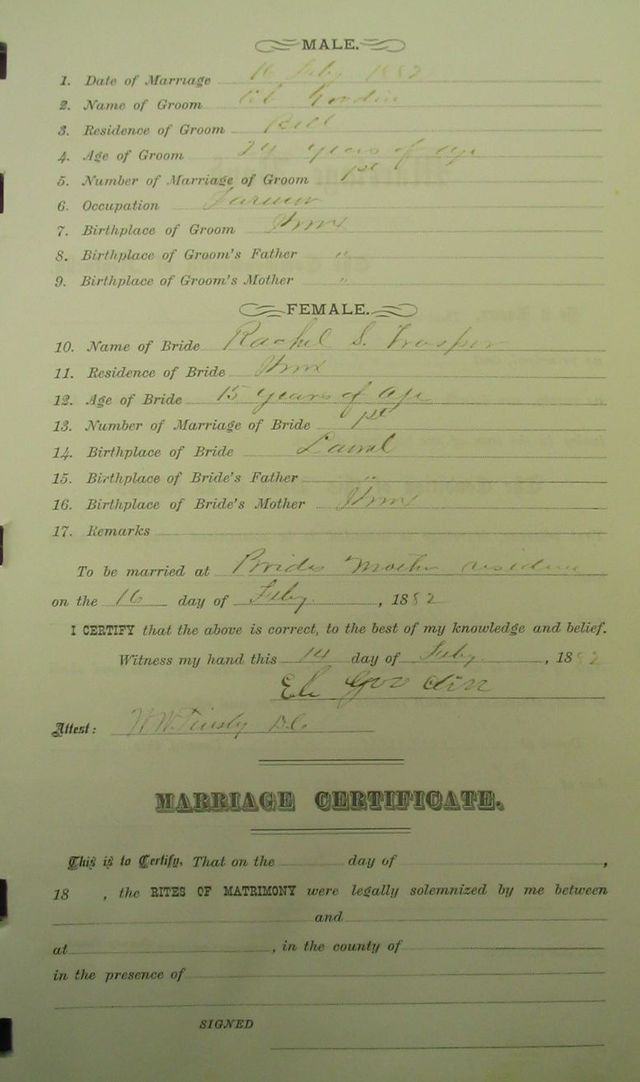 MALE.
1. Date of Marriage 16 Feby 1882
2. Name of Groom Goodin
3. Residence of Groom Bell
4. Age of Groom 24 years of age
5. Number of Marriage of Groom 1st
6. Occupation Farmer
7. Birthplace of Groom Knox
8. Birthplace of Groom's Father "
9. Birthplace of Groom's Mother "
FEMALE.
10. Name of Bride Rachel S. Prosper
11. Residence of Bride Knox
12. Age of Bride 15 years of age
13. Number of Marriage of Bride 1st
14. Birthplace of Bride Laurel
15. Birthplace of Bride's Father "
16. Birthplace of Bride's Mother Knox
17. Remarks
To be married at Brides Mother residence
on the 16 day of Feby. , 1882
I CERTIFY that the above is correct, to the best of my knowledge and belief.
Witness my hand this 14 day of Feby. , 1882
Eli Goodin
Attest: W.W. Tinsley D.C.
MARRIAGE CERTIFICATE.
This is to Certify, That on the day of ,
18 , the RITES OF MATRIMONY were legally solemnized by me between
and
at , in the county of
in the presence of
SIGNED